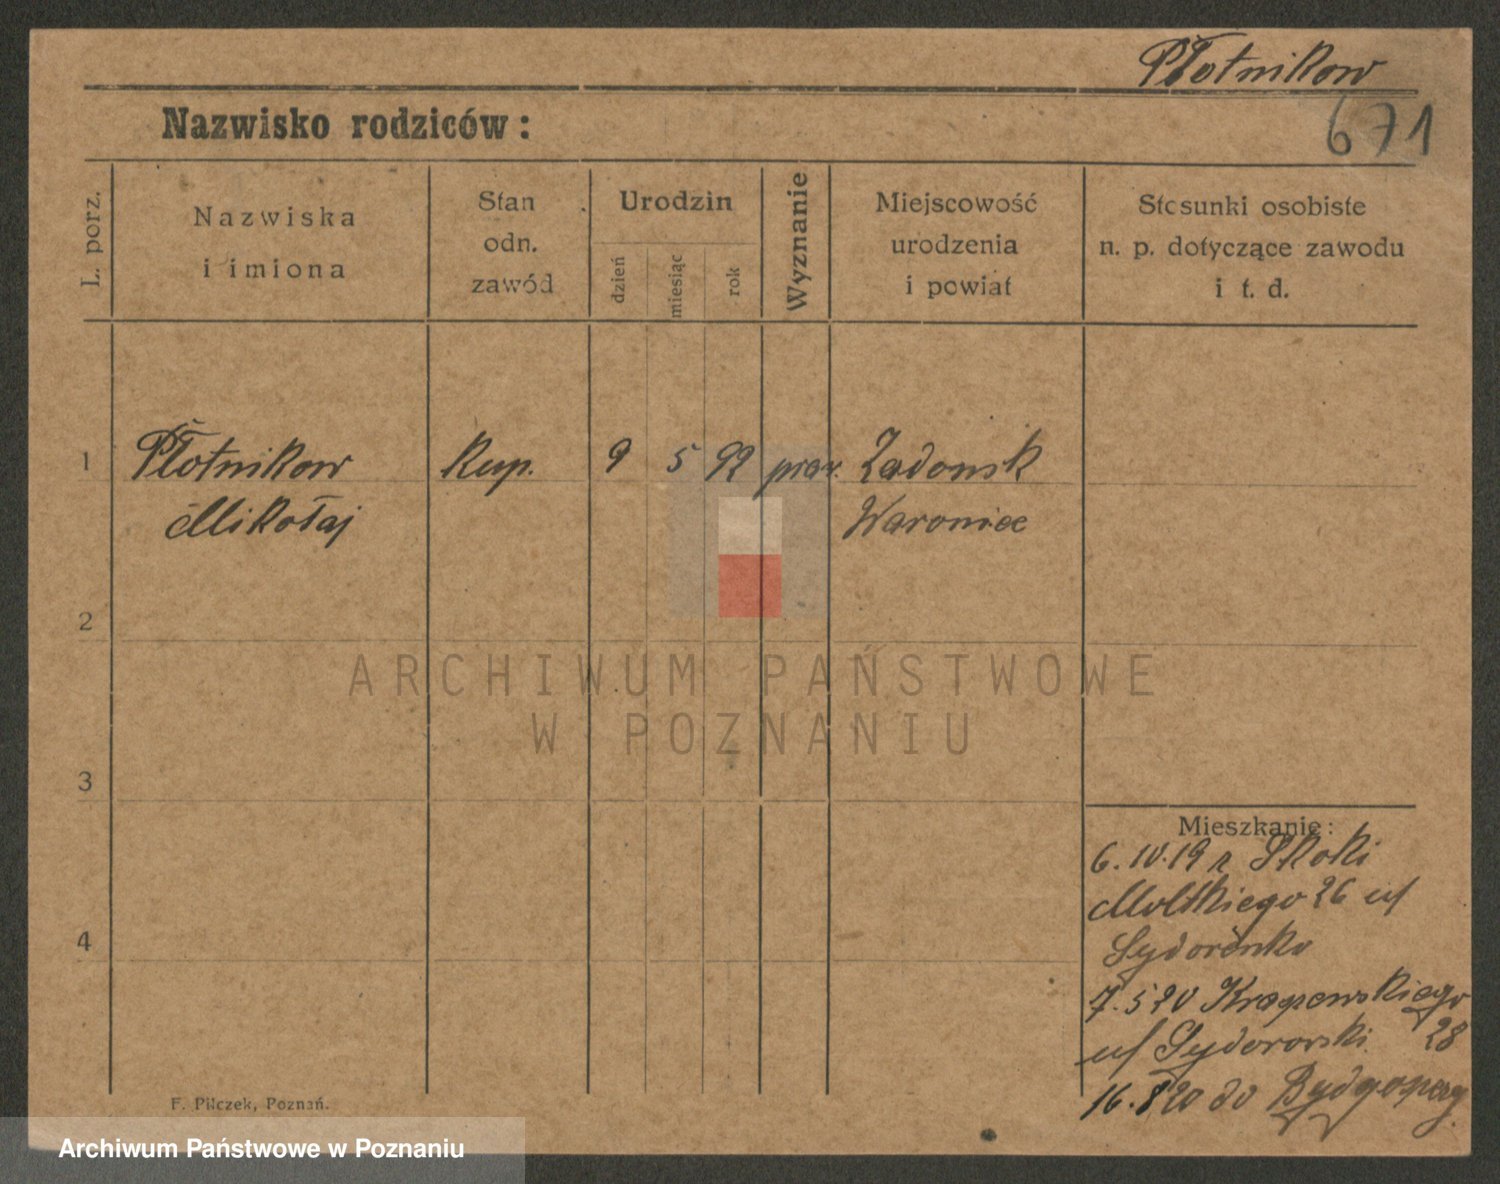 Płotnikow
671
Nazwisko rodziców:
L. porz.
Nazwiska
i imiona
Stan
odn.
zawód
Urodzin
dzień
miesiąc
rok
Wyznanie
Miejscowość
urodzenia
i powiat
Stosunki osobiste
n. p. dotyczące zawodu
i t. d.
1 Płotnikow Kup. 9 5 92 praw. Zadonsk
Mikołaj
2
3
4
ARCHIWUM PAŃSTWOWE
W POZNANIU
Mieszkanie:
6.IV.19 r Skoki
Moltkiego 26 u/
Sydorenko
7.5 20 28
u/
16.8 20 do
F. Pilczek, Poznań.
Archiwum Państwowe w Poznaniu